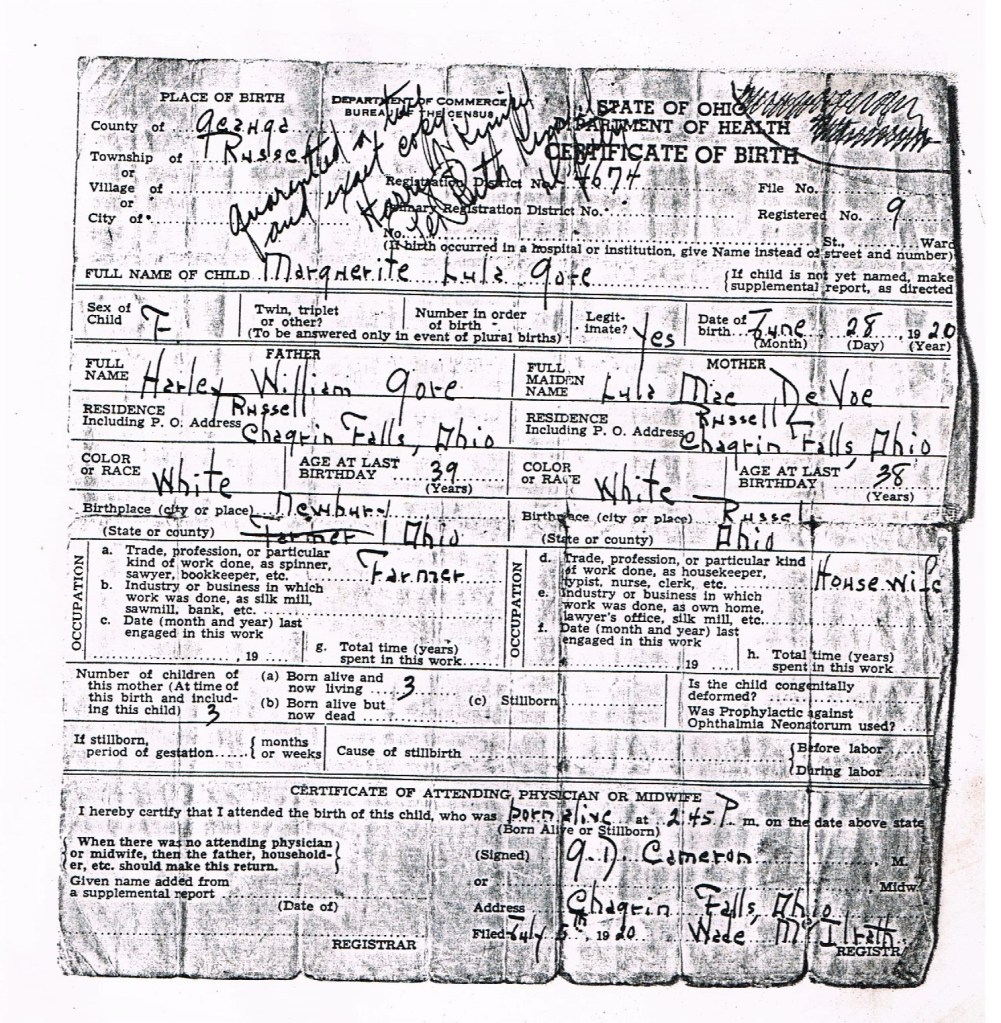 PLACE OF BIRTH
County of Geauga
Township of Russell
or
Village of
or
City of
DEPARTMENT OF COMMERCE
BUREAU OF THE CENSUS
STATE OF OHIO
DEPARTMENT OF HEALTH
CERTIFICATE OF BIRTH
Guaranteed a true
and exact copy
Harry
Registration District No. 4674
File No.
Primary Registration District No.
Registered No. 9
No. St., Ward
(If birth occurred in a hospital or institution, give Name instead of street and number)
FULL NAME OF CHILD Marguerite Lula Gore
{If child is not yet named, make
supplemental report, as directed
Sex of
Child F
Twin, triplet
or other?
Number in order
of birth
(To be answered only in event of plural births)
Legit-
imate? Yes
Date of
birth June 28, 1920
(Month) (Day) (Year)
FATHER
FULL
NAME Harley William Gore
MOTHER
FULL
MAIDEN
NAME Lula Mae De Voe
RESIDENCE Russell
Including P. O. Address Chagrin Falls, Ohio
RESIDENCE Russell
Including P. O. Address Chagrin Falls, Ohio
COLOR
or RACE White
AGE AT LAST
BIRTHDAY 39
(Years)
COLOR
or RACE White
AGE AT LAST
BIRTHDAY 38
(Years)
Birthplace (city or place) Newburg
(State or county) Farmer Ohio
Birthplace (city or place) Russell
(State or county) Ohio
OCCUPATION
a. Trade, profession, or particular
kind of work done, as spinner,
sawyer, bookkeeper, etc. Farmer
b. Industry or business in which
work was done, as silk mill,
sawmill, bank, etc.
c. Date (month and year) last
engaged in this work
, 19
g. Total time (years)
spent in this work
OCCUPATION
d. Trade, profession, or particular kind
of work done, as housekeeper,
typist, nurse, clerk, etc. Housewife
e. Industry or business in which
work was done, as own home,
lawyer's office, silk mill, etc.
f. Date (month and year) last
engaged in this work
19
h. Total time (years)
spent in this work
Number of children of
this mother (At time of
this birth and includ-
ing this child) 3
(a) Born alive and
now living 3
(b) Born alive but
now dead
(c) Stillborn
Is the child congenitally
deformed?
Was Prophylactic against
Ophthalmia Neonatorum used?
If stillborn,
period of gestation {months
or weeks
Cause of stillbirth
{Before labor
{During labor
CERTIFICATE OF ATTENDING PHYSICIAN OR MIDWIFE
I hereby certify that I attended the birth of this child, who was born alive at 2:45 P m. on the date above state
(Born Alive or Stillborn)
{When there was no attending physician
or midwife, then the father, household-
er, etc. should make this return.}
(Signed) G. D. Cameron M.
or Midw
Given name added from
a supplemental report
(Date of)
Address Chagrin Falls, Ohio
Filed July 5th, 1920 Wade McIlrath
REGISTRAR
REGISTR